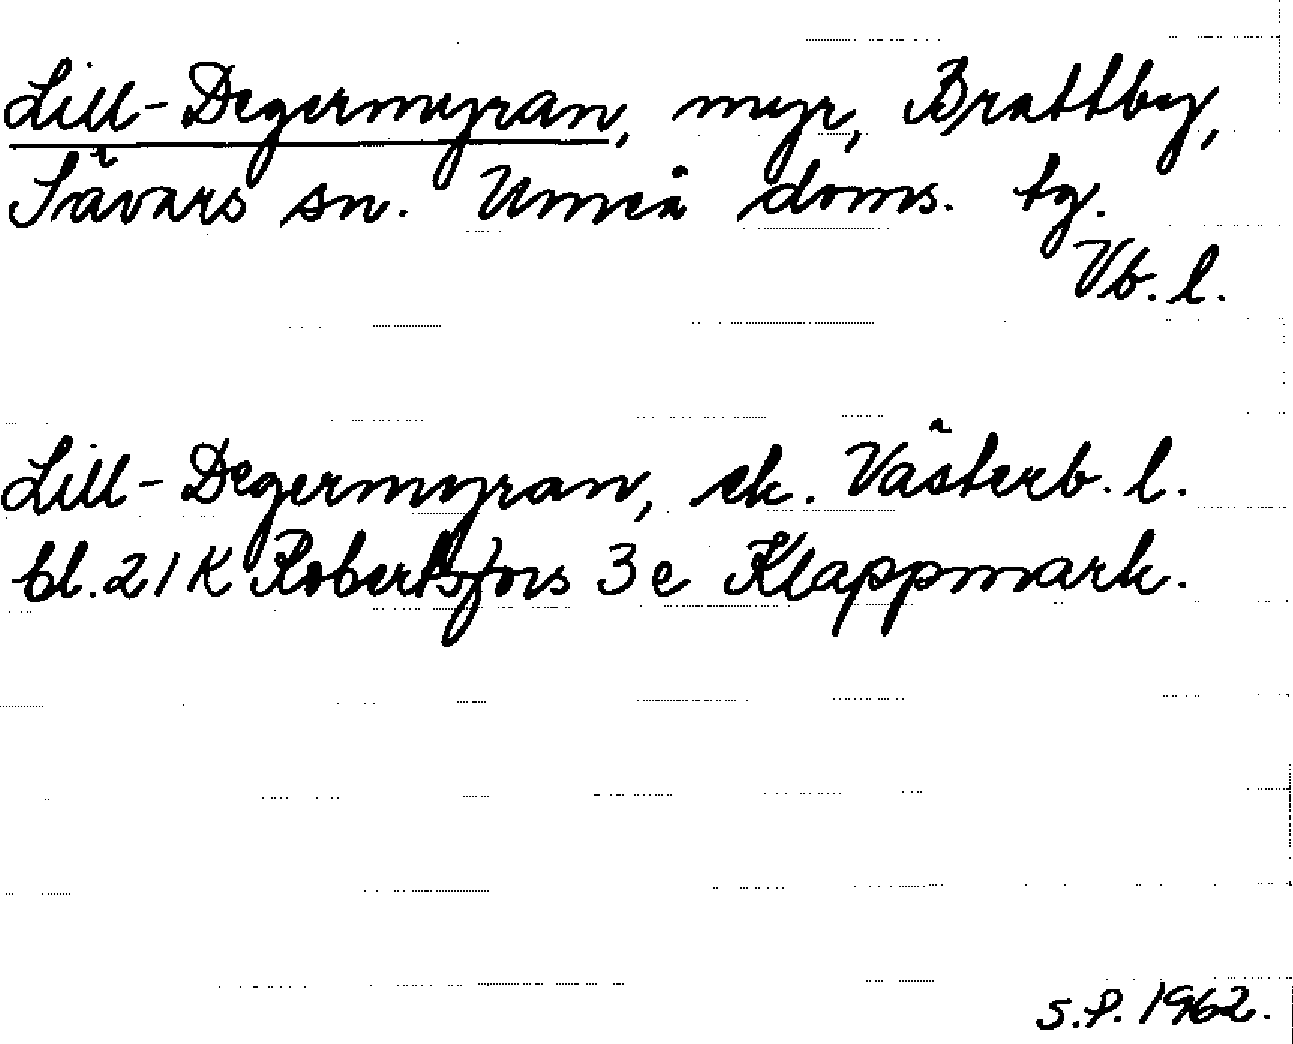 Lill-Degermyran, myr, Brattby,
Sävars sn. Umeå doms. tg.
Vb. l.
Lill-Degermyran, ek. Västerb. l.
bl. 21 K Robertsfors 3 e Klappmark.
S.P. 1962.